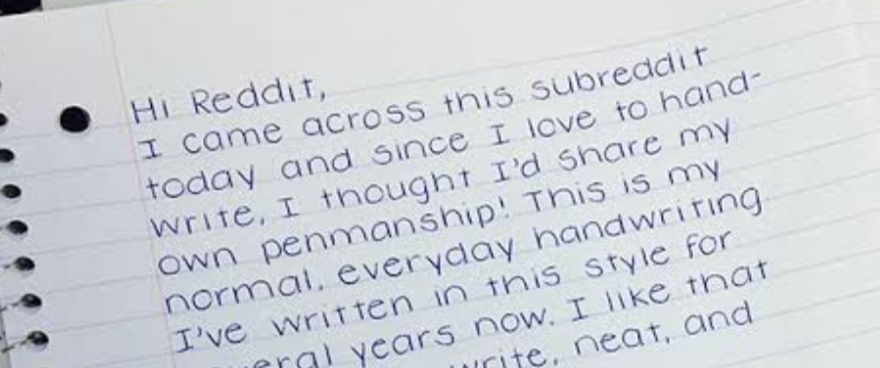 Hi Reddit,
I came across this subreddit
today and since I love to hand-
write, I thought I'd share my
own penmanship! This is my
normal, everyday handwriting
I've written in this style for
years now. I like that
write, neat, and